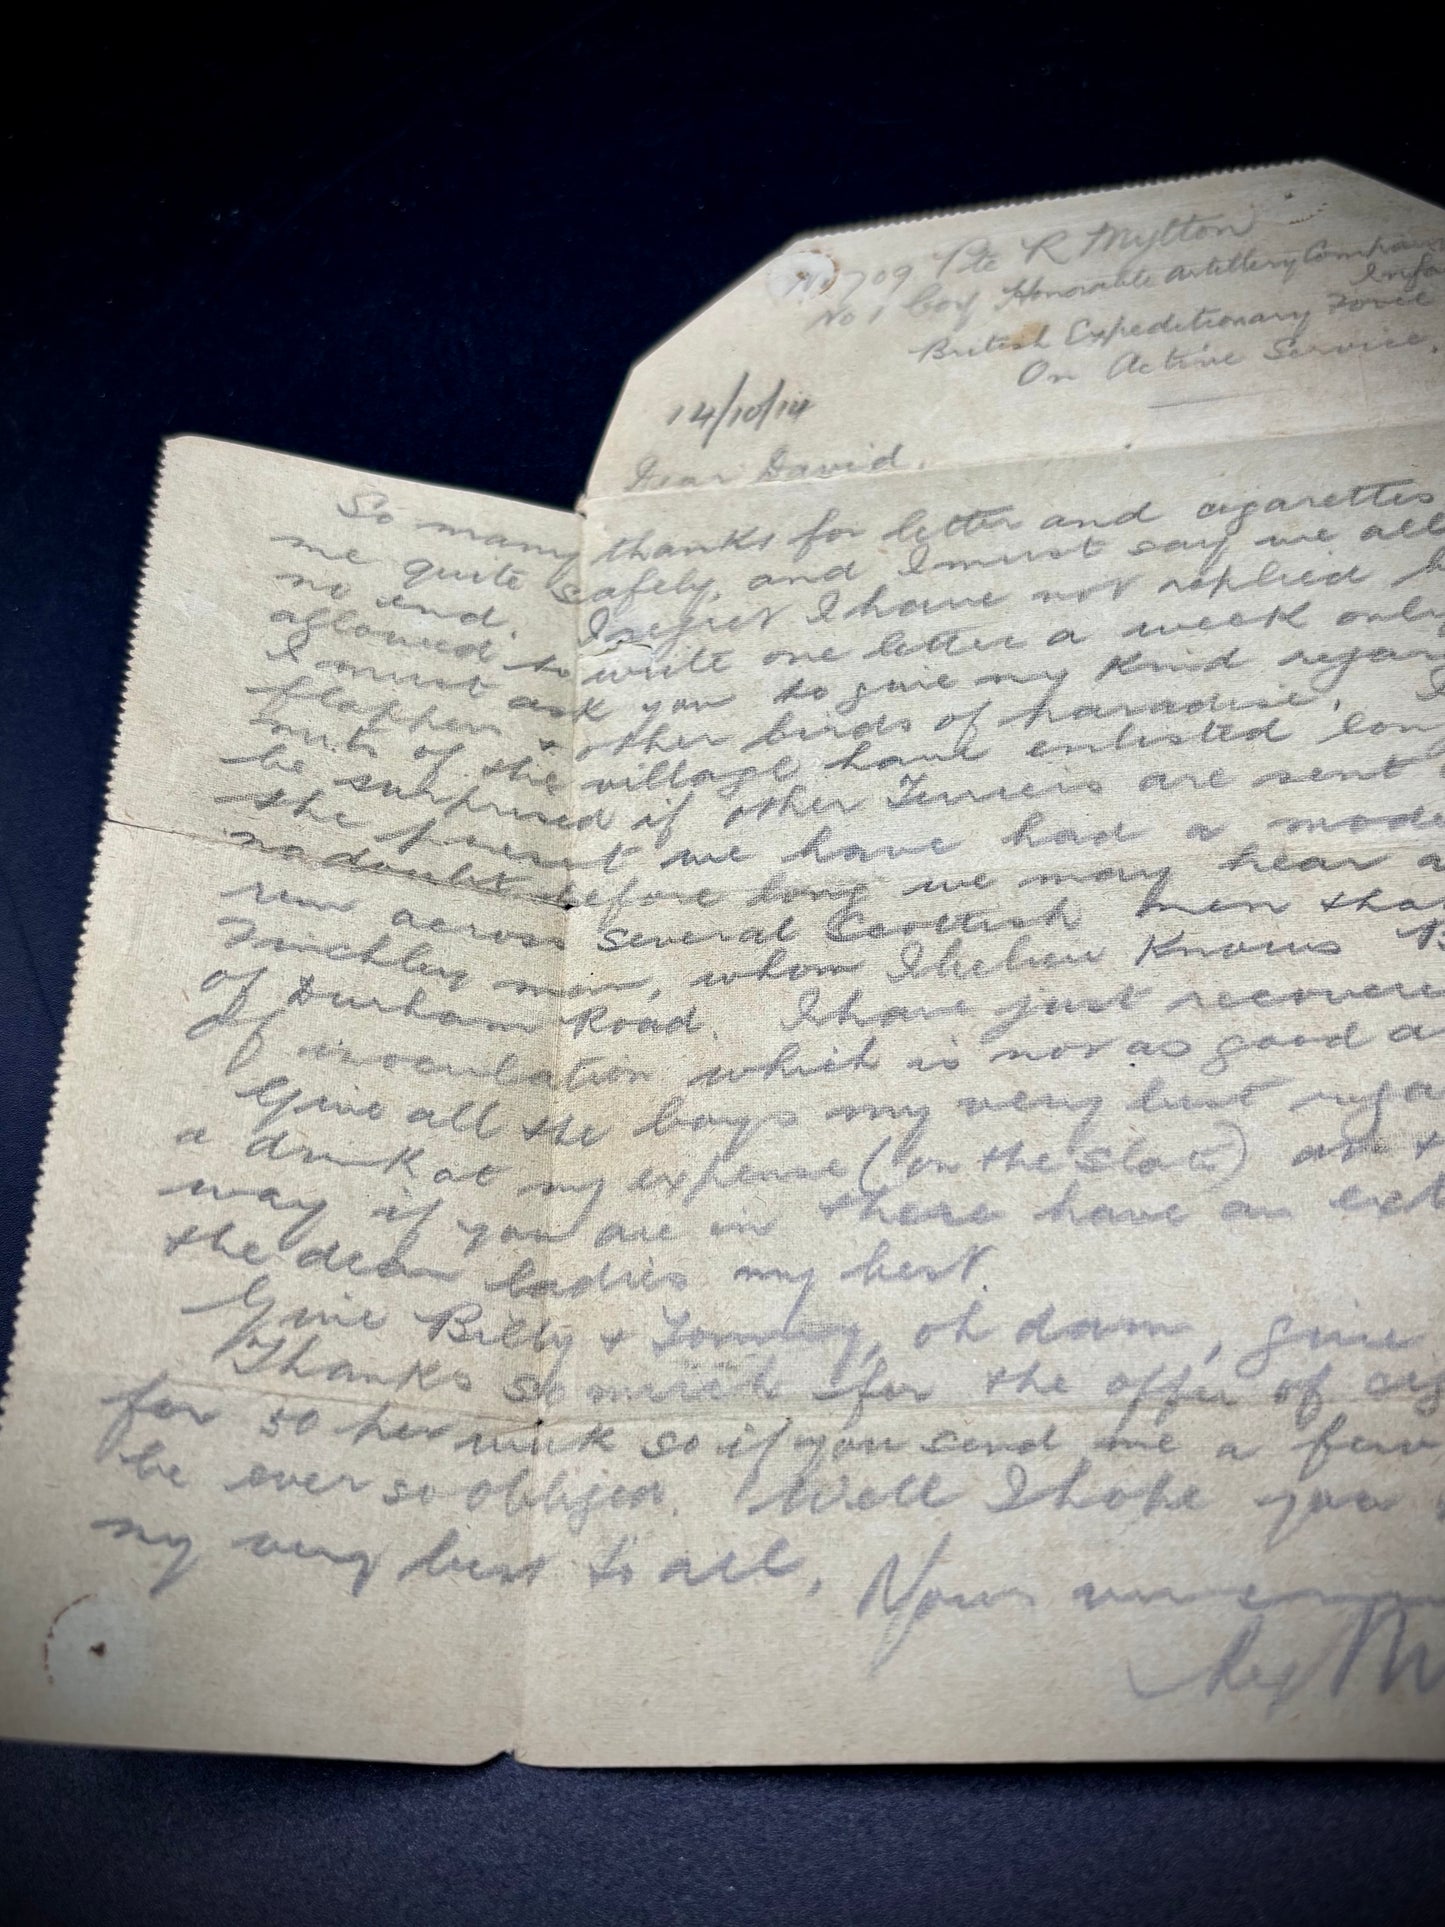 No 709 Pte R Mytton
No 1 Coy Honorable Artillery Compan
Infa
British Expeditionary Force
On Active Service.
14/10/14
Dear David,
So many thanks for letter and cigarettes
me quite safely, and I must say we all
no end. I regret I have not replied b
allowed to write one letter a week only
I must ask you to give my kind regar
flappers & other birds of paradise. I
nuts of the village have enlisted long
be surprised if other Terriers are sent
the present we have had a mode
nodoubt before long we may hear a
run across several Scottish men tha
Finchley man, whom I believe knows B
of Durham Road. I have just recovere
of inoculation which is not as good a
Give all the boys my very best rega
a drink at my expense (on the slate) at t
way if you are in there have an ext
the dear ladies my best.
Give Billy & Tommy, oh dam, give
Thanks so much for the offer of cig
for 50 per week so if you send me a few
be ever so obliged. Well I hope you
my very best to all. Yours
Rex M